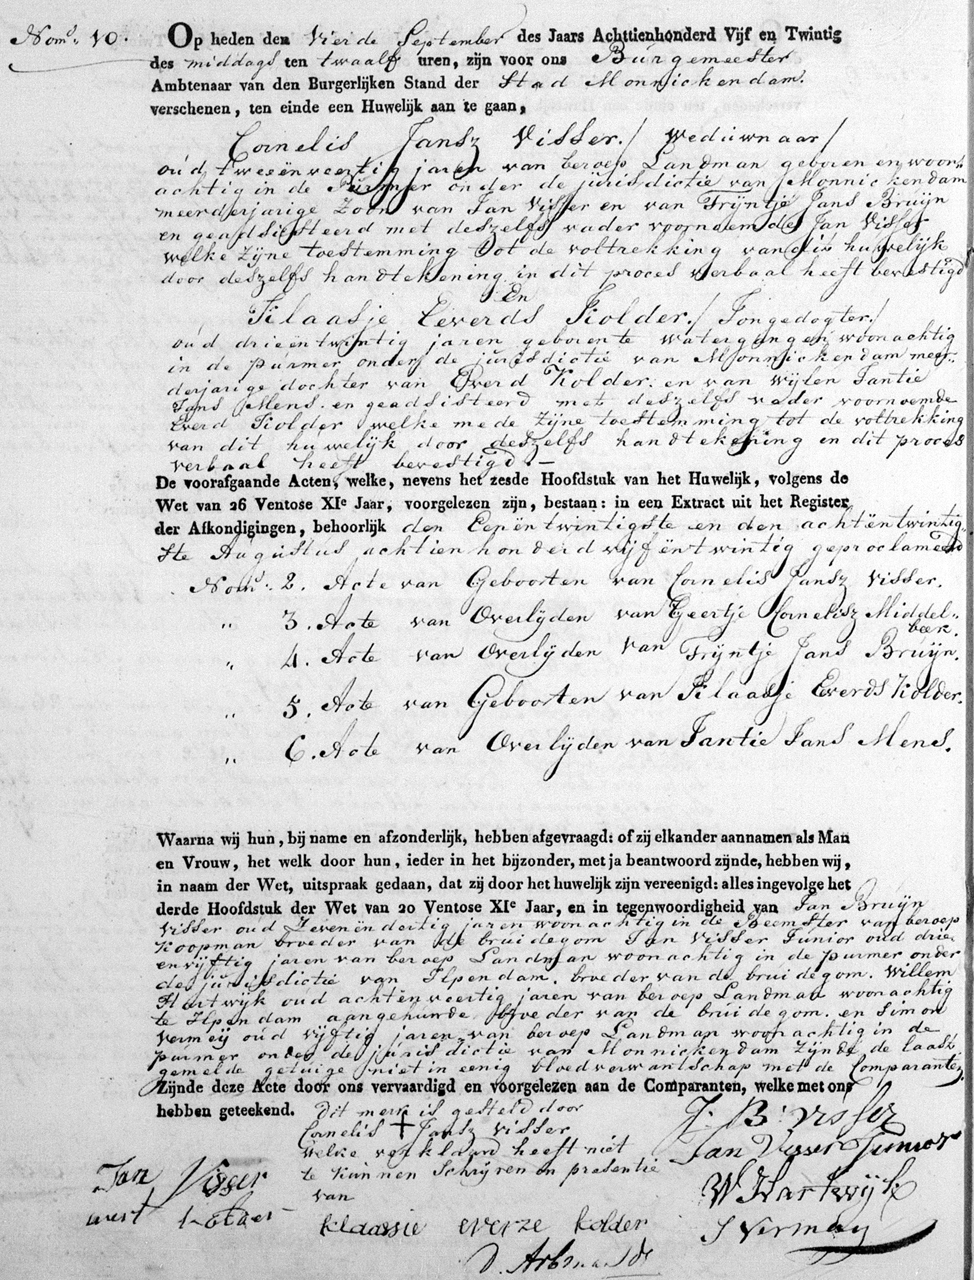 Nom.º 10. Op heden den Vierde September des Jaars Achttienhonderd Vijf en Twintig
des middags ten twaalf uren, zijn voor ons Burgemeester
Ambtenaar van den Burgerlijken Stand der Stad Monnickendam.
verschenen, ten einde een Huwelijk aan te gaan,
Cornelis Jansz Visser / Weduwnaar /
oud tweeënveertig jaren van beroep Landman geboren en woon-
achtig in de Purmer onder de jurisdictie van Monnickendam
meerderjarige Zoon van Jan Visser en van Trijntje Jans Bruijn
en geadsisteerd met deszelfs vader voornoemde Jan Visser
welke zijne toestemming tot de voltrekking van dit huwelijk
door deszelfs handtekening in dit proces verbaal heeft bevestigd
En
Klaasje Everds Kolder / Jongedogter /
oud drieëntwintig jaren geborente Watergangen woonachtig
in de Purmer onder de jurisdictie van Monnickendam meer-
derjarige dochter van Everd Kolder. en van wijlen Jantie
Jans Mens. en geadsisteerd met deszelfs vader voornoemde
Everd Kolder welke mede zijne toestemming tot de voltrekking
van dit huwelijk door deszelfs handtekening in dit proces
verbaal heeft bevestigd. —
De voorafgaande Acten, welke, nevens het zesde Hoofdstuk van het Huwelijk, volgens de
Wet van 26 Ventose XIe Jaar, voorgelezen zijn, bestaan: in een Extract uit het Register
der Afkondigingen, behoorlijk den Eenëntwintigste en den achtëntwintig-
ste Augustus achtienhonderd vijfëntwintig geproclameerd
Nom.º 2. Acte van Geboorten van Cornelis Jansz Visser.
„ 3. Acte van Overlijden van Geertje Cornelisz Middel-
beek.
„ 4. Acte van Overlijden van Trijntje Jans Bruijn.
„ 5. Acte van Geboorten van Klaasje Everds Kolder.
„ 6. Acte van Overlijden van Jantie Jans Mens.
Waarna wij hun, bij name en afzonderlijk, hebben afgevraagd: of zij elkander aannamen als Man
en Vrouw, het welk door hun, ieder in het bijzonder, met ja beantwoord zijnde, hebben wij,
in naam der Wet, uitspraak gedaan, dat zij door het huwelijk zijn vereenigd: alles ingevolge het
derde Hoofdstuk der Wet van 20 Ventose XIe Jaar, en in tegenwoordigheid van Jan Bruijn
Visser oud Zevenëndertig jaren woonachtig in de Beemster van beroep
Koopman broeder van de bruidegom Jan Visser Junior oud drie
envijftig jaren van beroep Landman woonachtig in de purmer onder
de jurisdictie van Ilpendam. broeder van de bruidegom. Willem
Hartwijk oud achtënveertig jaren van beroep Landman woonachtig
te Ilpendam aangehuwde broeder van de bruidegom. en Simon
Vermeij oud vijftig jaren van beroep Landman woonachtig in de
purmer onder de jurisdictie van Monnickendam Zijnde de laast
gemelde getuige niet in eenig bloedverwantschap met de Comparanten,
Zijnde deze Acte door ons vervaardigd en voorgelezen aan de Comparanten, welke met ons
hebben geteekend. Dit merk is gesteld door
Cornelis + Jansz Visser
welke verklaard heeft niet
te kunnen Schrijven in presentie
van
J: B: Visser
Jan Visser Junior
W Hartwijk
S Vermay
Jan Visser
Klaassie everze kolder